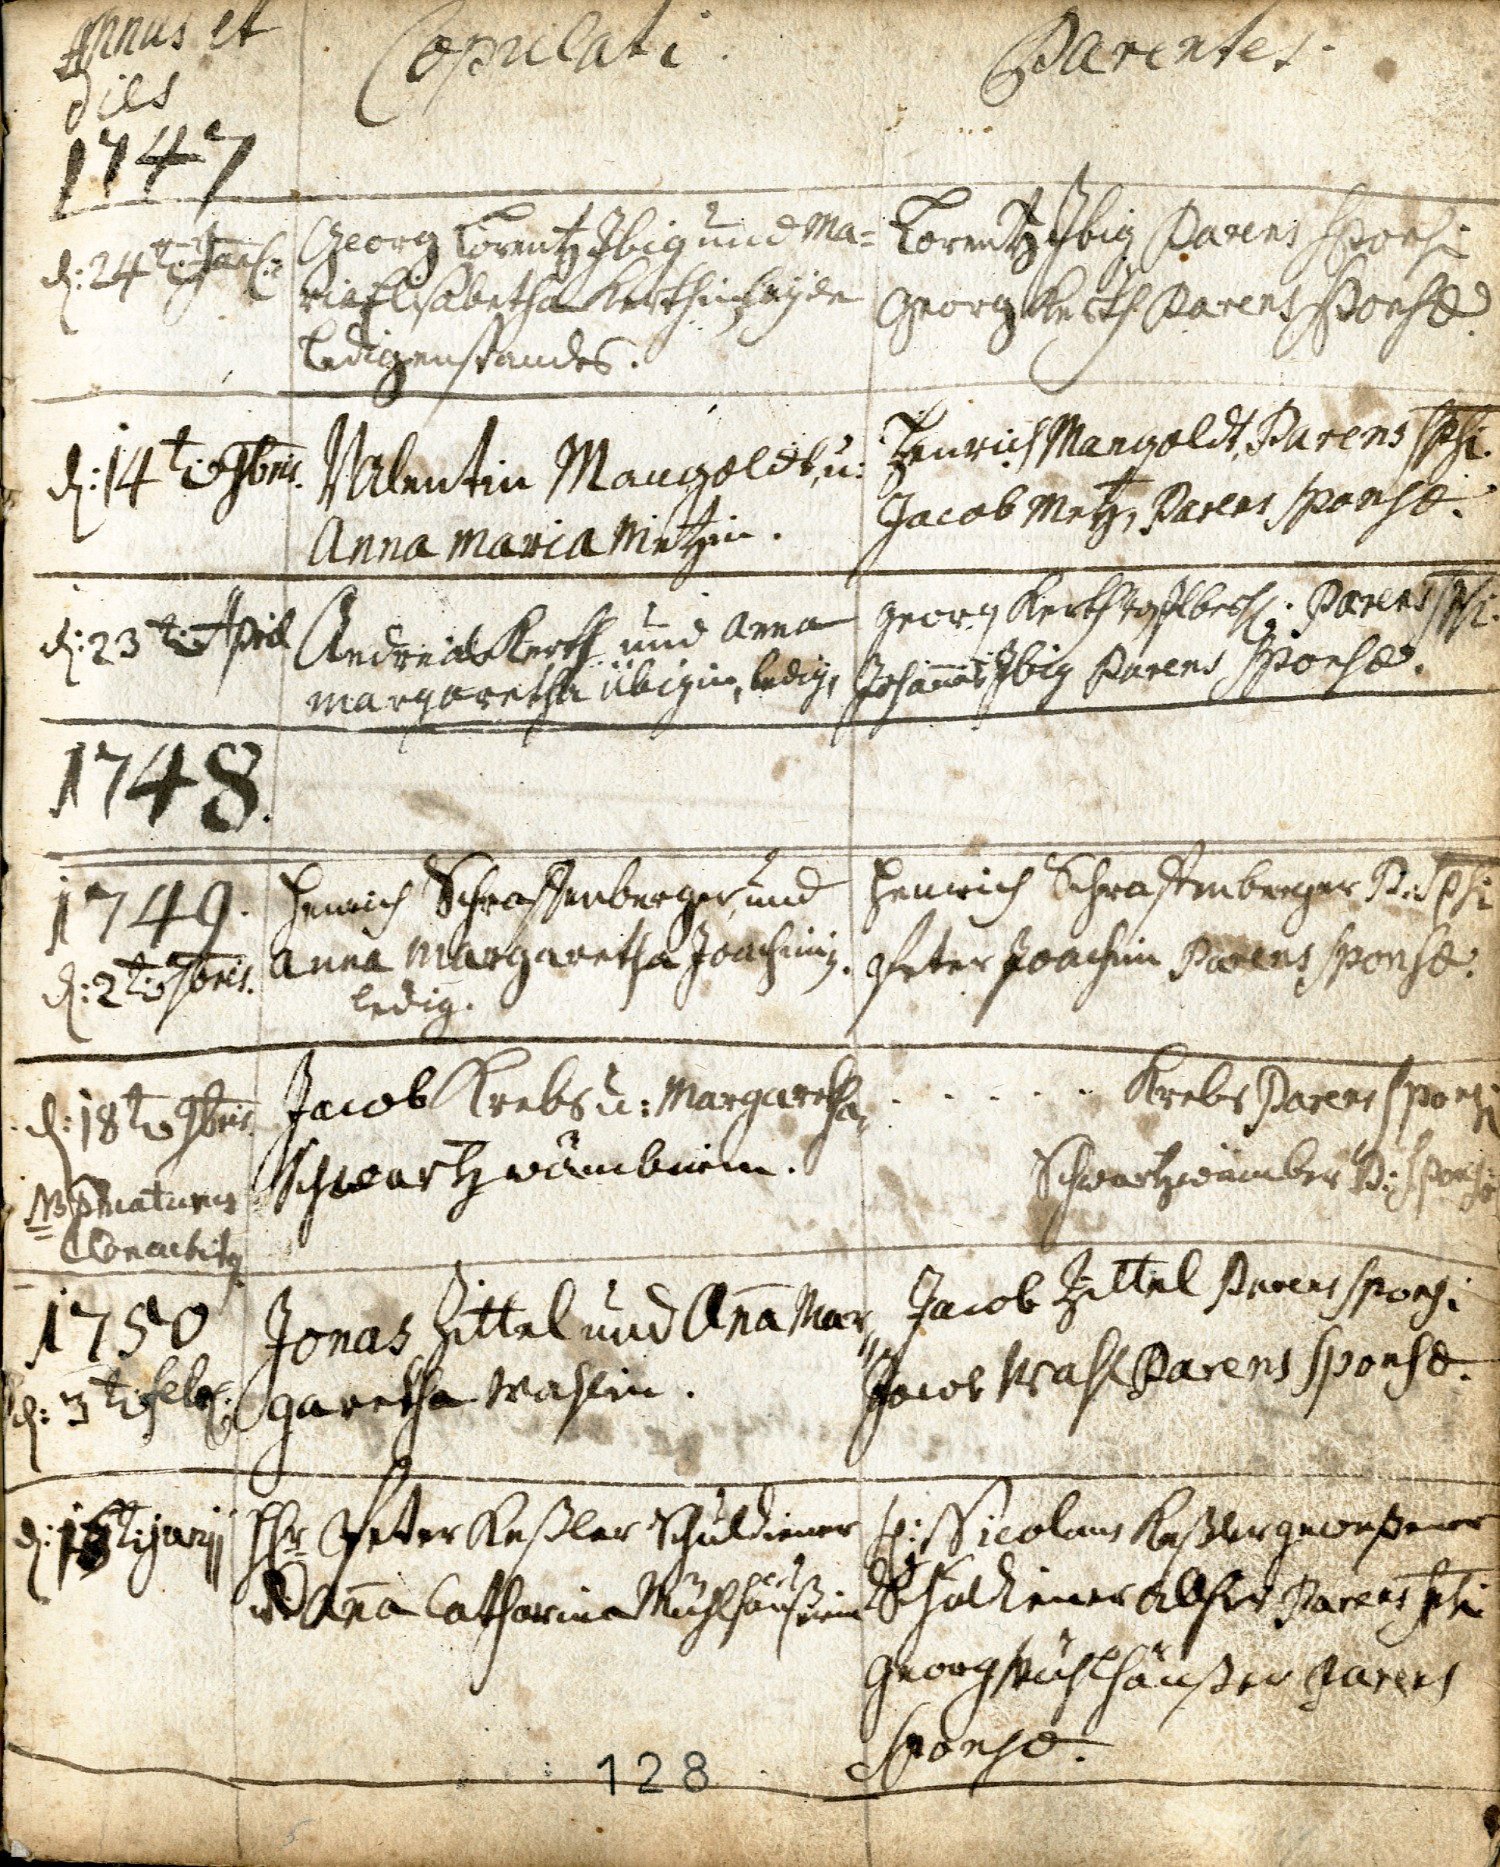 Annus et
dies
Copulati.
Parentes.
1747
d: 24t Jan:
Georg Lorentz Ibig und Ma=
ria Elisabetha Kerthin, beyde
ledigen standes.
Lorentz Ibig Parens Sponsi
Georg Kerth Parens Sponsæ.
d: 14t 9bris.
Valentin Mangoldt, u:
Anna Maria Metzin.
Henrich Mangoldt, Parens Spsi.
Jacob Metz, Parens Sponsæ.
d: 23t April
Andreas Kerth und Anna
Margaretha Übigin, ledig,
Georg Kerth Parens Spsi.
Johannes Ibig Parens Sponsæ.
1748.
1749.
d: 2t 9bris.
Henrich Schraffenberger und
Anna Margaretha Joachimin.
ledig.
Henrich Schraffenberger P: Spsi
Peter Joachim Parens Sponsæ.
d: 18t 9bris.
NB
Jacob Krebs u: Margaretha
Schwartzwämberin.
. . . . . Krebs Parens Sponsi
Schwartzwämber P: Sponsæ
1750
d: 3t febr:
Jonas Zittel und Aña Mar„
garetha Wahlin.
Jacob Zittel Parens Sponsi
Jacob Wahl Parens Sponsæ.
Hr Peter Keßler Schuldiener
u Aña Catharina Mühlhäußerin
Nicolaus Keßler gewesener
Schuldiener Parens Spsi
Georg Mühlhäußer Parens
Sponsæ.
128